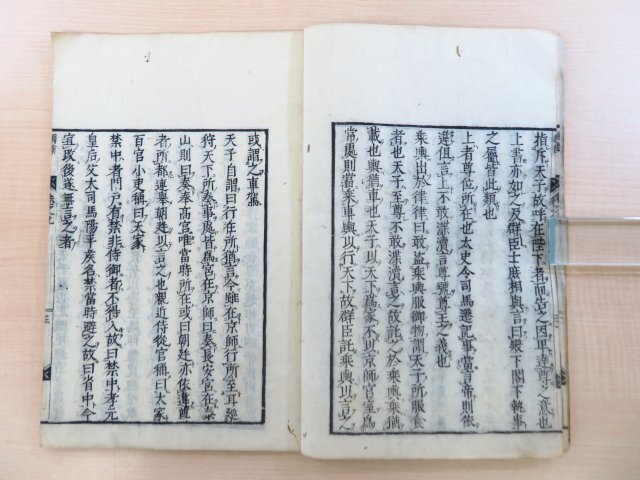 指斥天子故呼在陛下者而告之因卑達尊之意也
上書亦如之及群臣士庶相與言曰殿下閣下執事
之屬皆此類也
上者尊位所在也太史令司馬遷記事當言帝則依
違但言上不敢渫瀆言尊號尊王之義也
乘輿出於律律曰敢盜乘輿服御物謂天子所服食
者也天子至尊不敢渫瀆言之故託之於乘輿乘猶
載也輿猶車也天子以天下為家不以京師宮室為
常處則當乘車輿以行天下故群臣託乘輿以言之
或謂之車駕
天子自謂曰行在所猶言今雖在京師行所至耳巡
狩天下所奏事處皆為宮在京師曰奏長安宮在泰
山則曰奏奉高宮唯當時所在或曰朝廷亦依違尊
者所都連舉朝廷以言之也親近侍從官稱曰大家
百官小吏稱曰天家
禁中者門戶有禁非侍御者不得入故曰禁中孝元
皇后父大司馬陽平侯名禁當時避之故曰省中今
宜改後遂無言之者